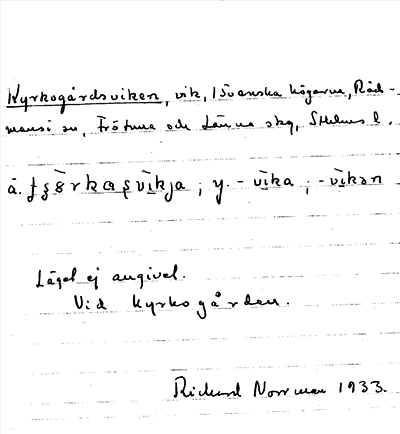 Kyrkogårdsviken, vik, i Svenska högarna, Råd-
mansö sn, Frötuna och Länna skg, Sthlms l.
ä. ; y. - vika ; - vikən
Läget ej angivet.
Vid kyrkogården.
Rickard Norrman 1933.